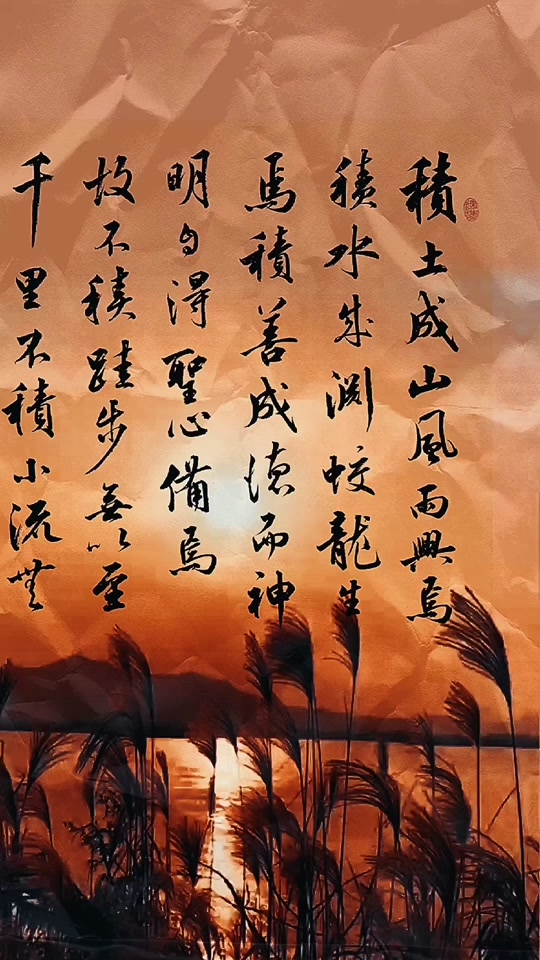 積土成山風雨興焉
積水成淵蛟龍生
焉積善成德而神
明自得聖心備焉
故不積跬步無以至
千里不積小流無